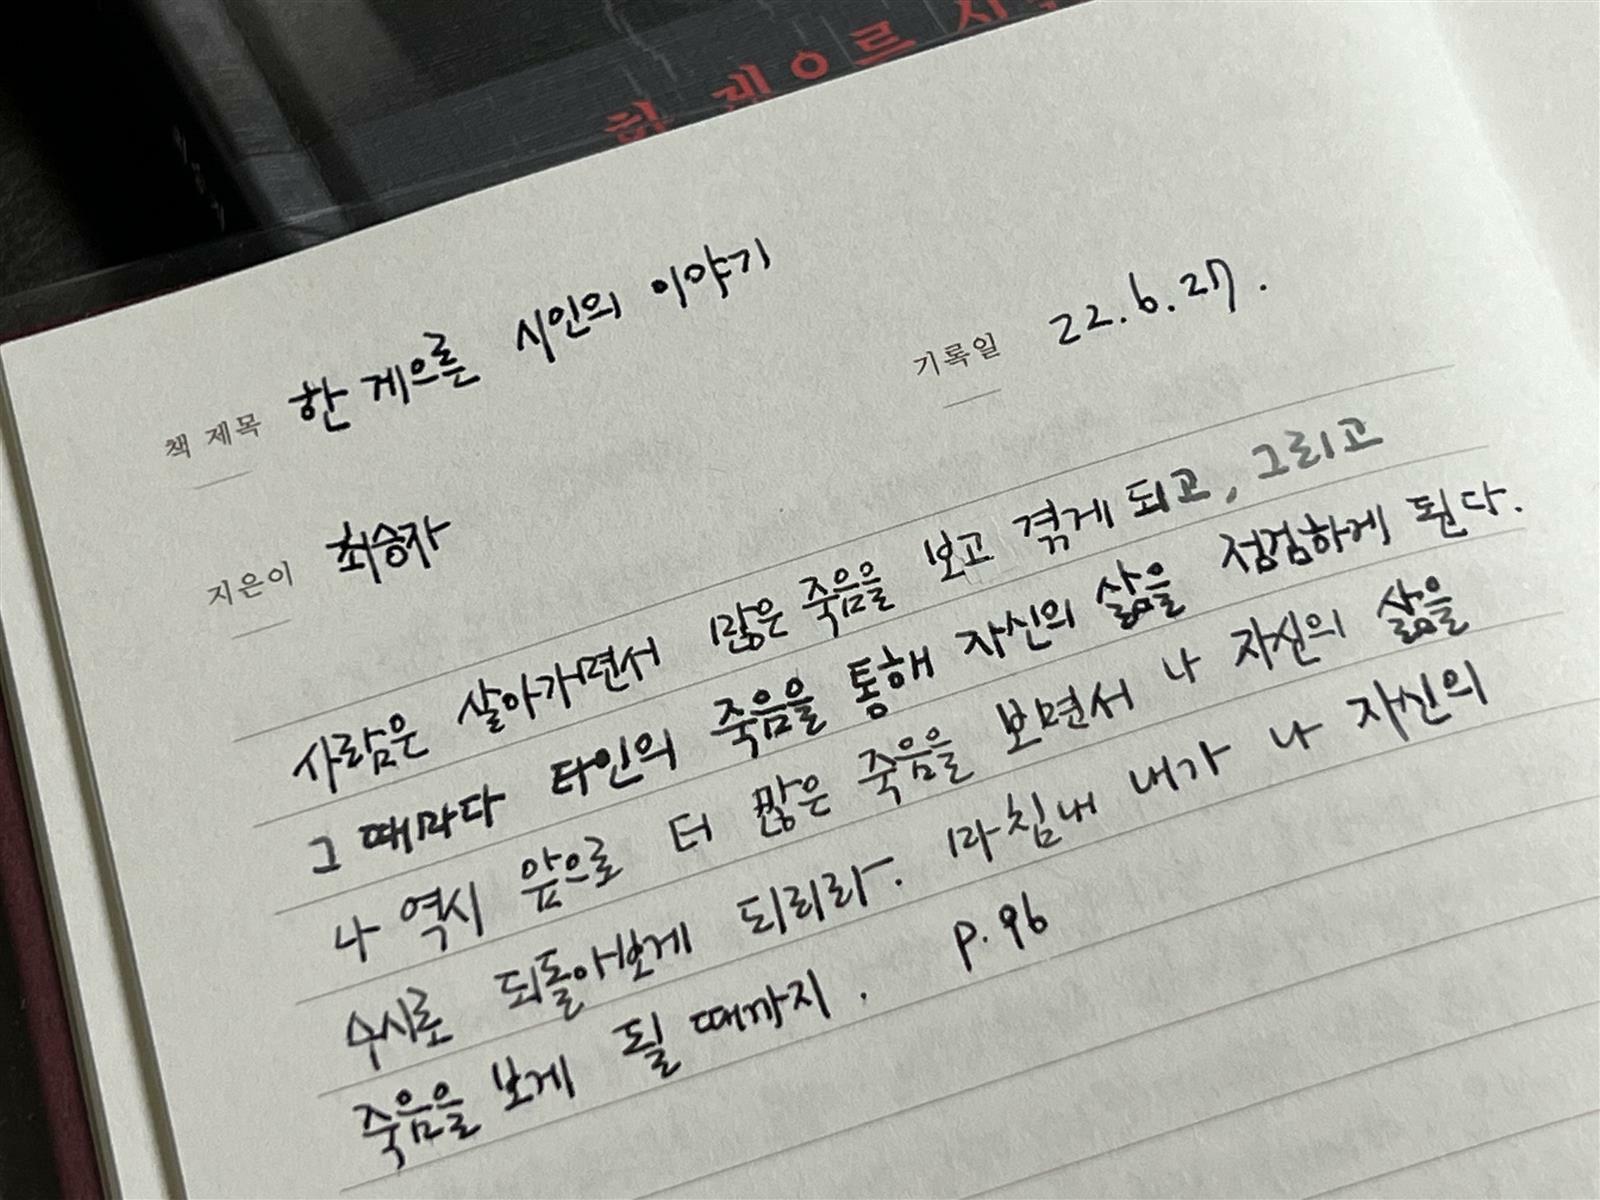 한 게으른 시
책 제목 한 게으른 시인의 이야기
기록일 22.6.27.
지은이 최승자
사람은 살아가면서 많은 죽음을 보고 겪게 되고, 그리고
그 때마다 타인의 죽음을 통해 자신의 삶을 점검하게 된다.
나 역시 앞으로 더 많은 죽음을 보면서 나 자신의 삶을
수시로 되돌아보게 되리라. 마침내 내가 나 자신의
죽음을 보게 될 때까지. p.96